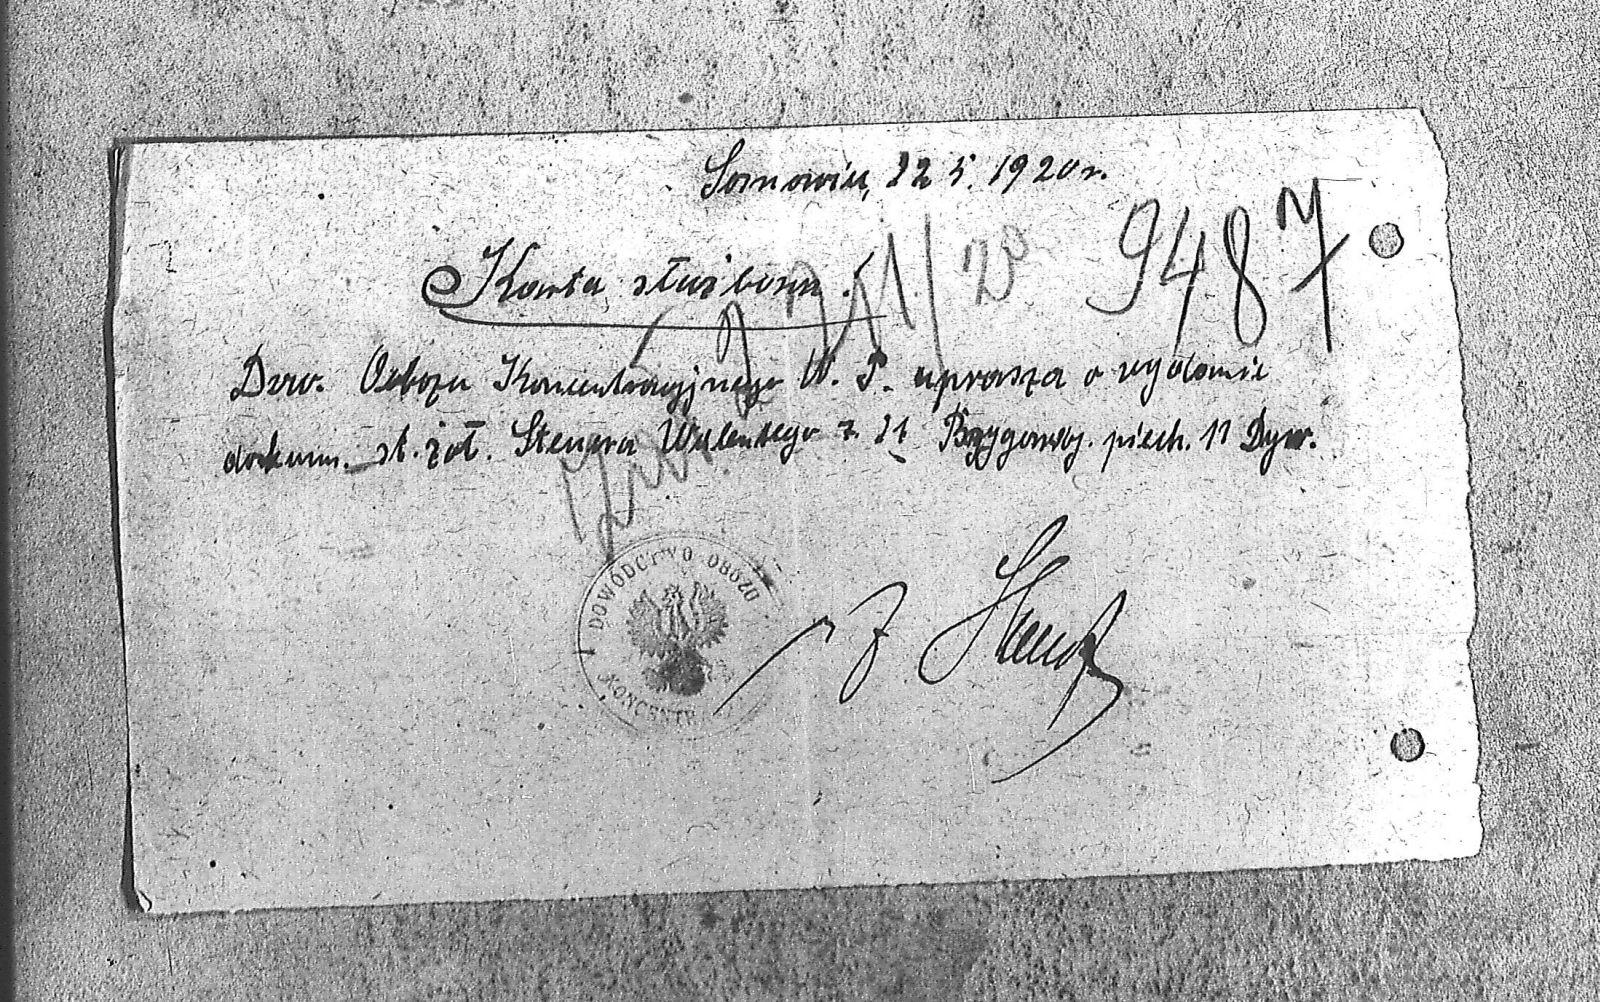 Sosnowiec, 22 5. 1920 r.
9487
Karta służbowa.
Dow. Obozu Koncentracyjnego W. P. uprasza o wydanie
dokum. st. żoł. Stenera Walentego z 21 Brygady piech. 11 Dyw.
DOWÓDCTWO OBOZU
KONCENTR